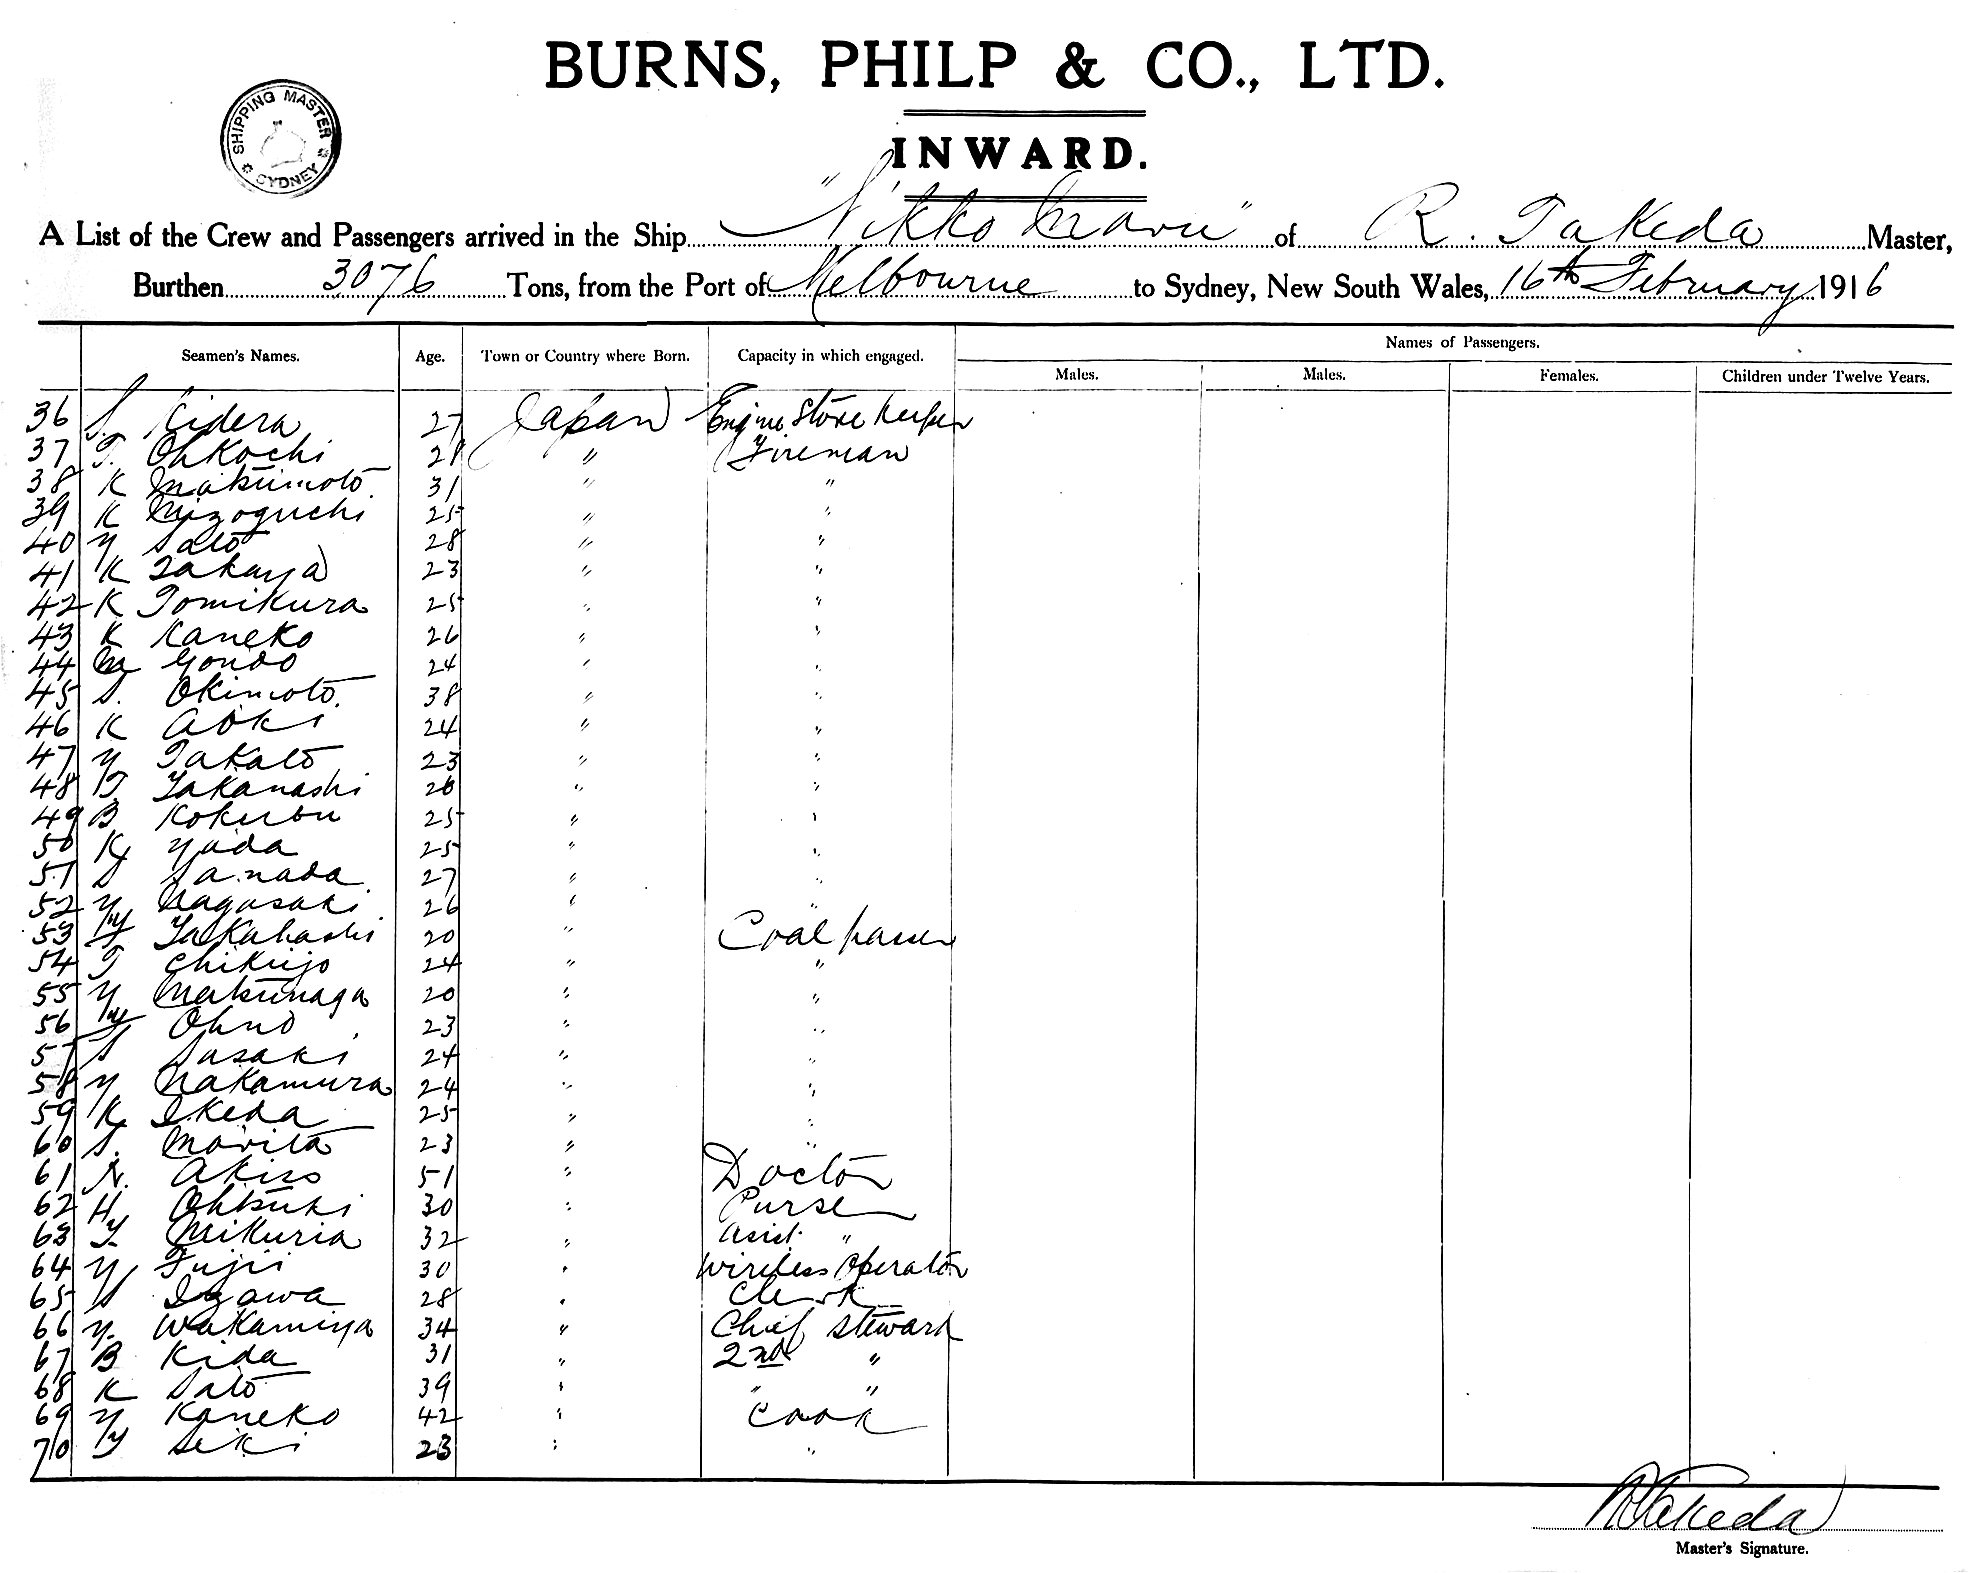 BURNS, PHILP & CO., LTD.
SHIPPING MASTER
SYDNEY
INWARD.
A List of the Crew and Passengers arrived in the Ship "Nikko Maru" of R. Takeda Master,
Burthen 3076 Tons, from the Port of Melbourne to Sydney, New South Wales, 16th February 1916
Names of Passengers.
Seamen's Names. Age. Town or Country where Born. Capacity in which engaged. Males. Males. Females. Children under Twelve Years.
36 S. Kidera 27 Japan Engine Store Keeper
37 T. Ohkochi 21 " Fireman
38 K Matsumoto 31 " "
39 K Mizoguchi 25 " "
40 Y Sato 28 " "
41 K Takaya 23 " "
42 K Tomikura 25 " "
43 K Kaneko 26 " "
44 M Gondo 24 " "
45 S. Okimoto. 38 " "
46 K Aoki 24 " "
47 Y Takato 23 " "
48 T Takanashi 26 " "
49 B Kokubu 25 " "
50 K Yada 25 " "
51 S Sanada 27 " "
52 Y Nagasaki 26 " "
53 Takahashi 20 " Coal passer
54 T Chikujo 24 " "
55 Y Matsunaga 20 " "
56 Ohno 23 " "
57 S Sasaki 24 " "
58 Y Nakamura 24 " "
59 K Ikeda 25 " "
60 S. Morita 23 " "
61 N. Akiso 51 " Doctor
62 H Ohtsuki 30 " Purser
63 T Mikuria 32 " Asist. "
64 Y Fujii 30 " Wireless Operator
65 S Izawa 28 " Clerk
66 Y. Wakamiya 34 " Chief Steward
67 B Kida 31 " 2nd "
68 K Sato 39 " " "
69 Y Kaneko 42 " Cook
70 Y Seki 23 " "
R Takeda
Master's Signature.